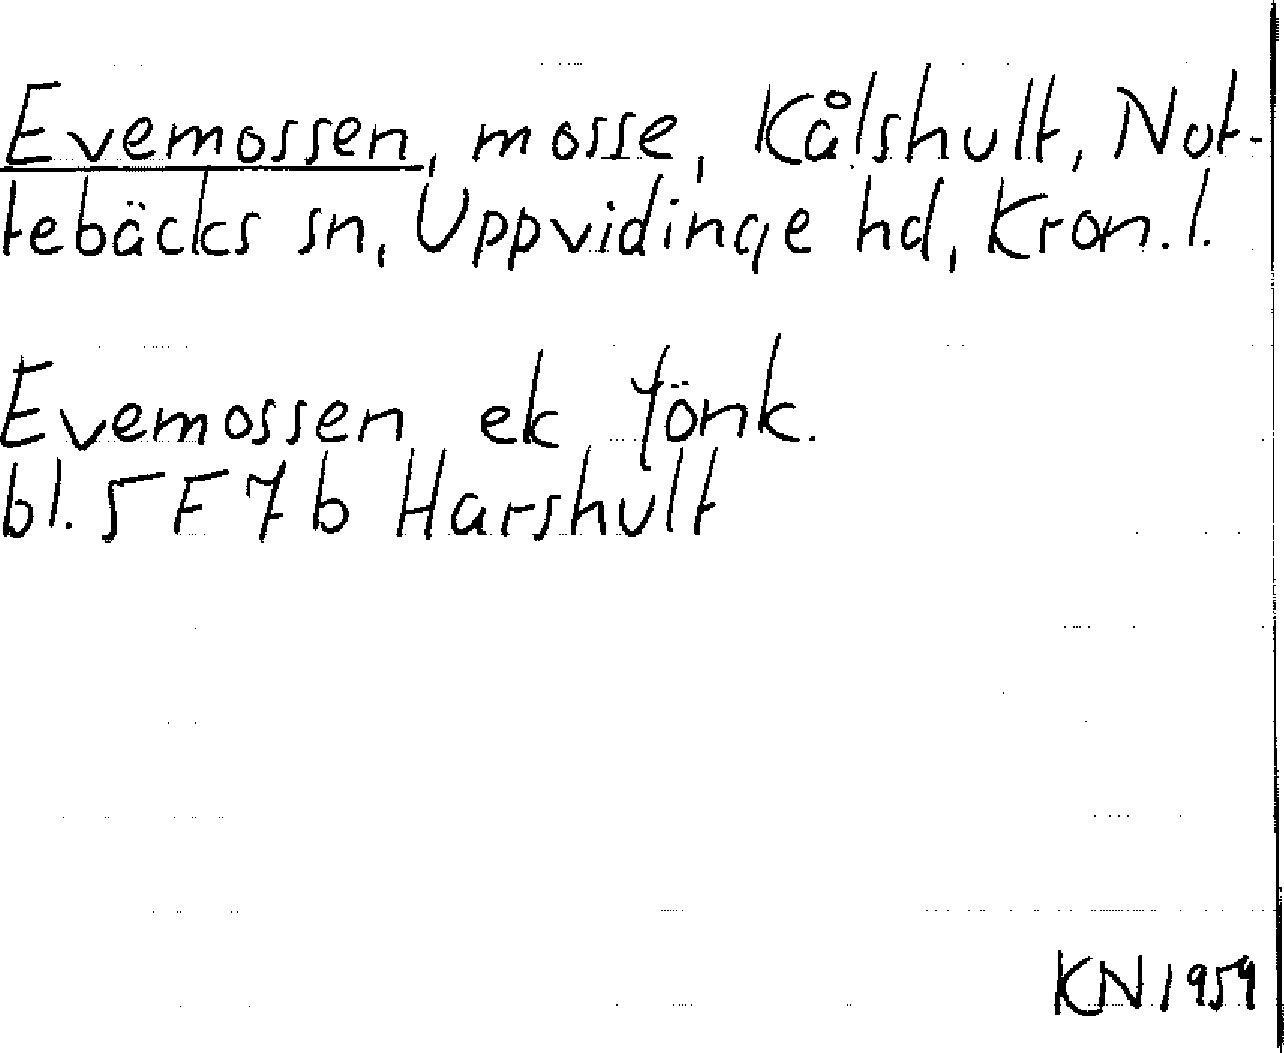 Evemossen, mosse, Kålshult, Not-
tebäcks sn, Uppvidinge hd, Kron. l.
Evemossen ek Jönk.
bl. 5 F 7 b Harshult
KN 1959